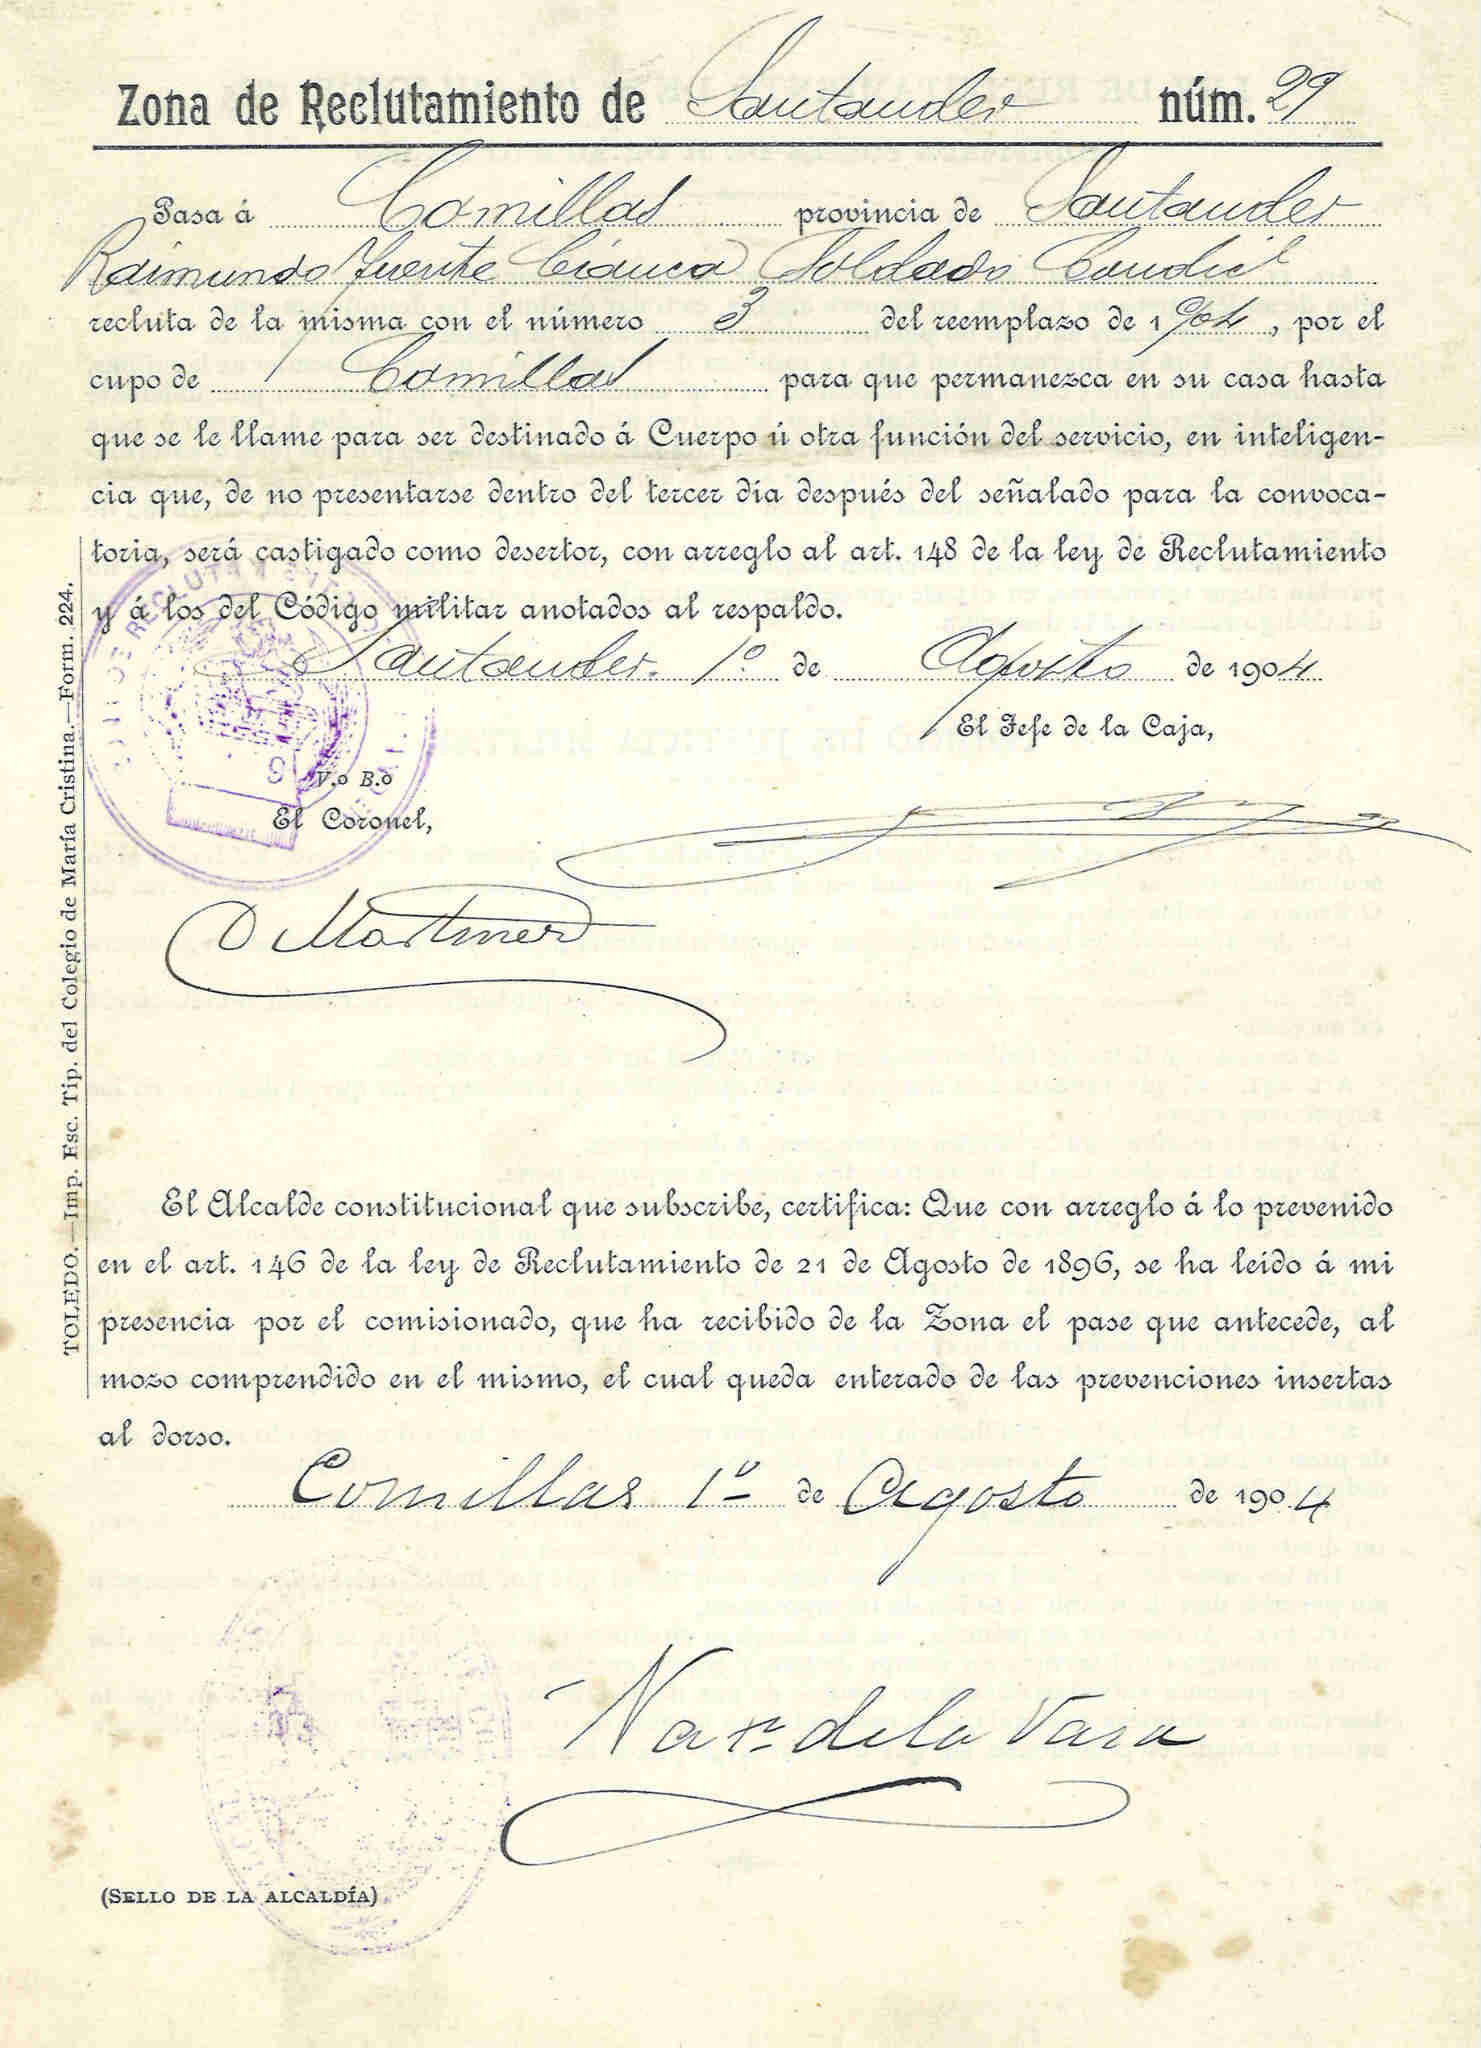 Zona de Reclutamiento de Santander núm. 29
Pasa á Comillas provincia de Santander
Raimundo Fuente Cianca Soldado Condicl
recluta de la misma con el número 3 del reemplazo de 1904, por el
cupo de Comillas para que permanezca en su casa hasta
que se le llame para ser destinado á Cuerpo ú otra función del servicio, en inteligen-
cia que, de no presentarse dentro del tercer día después del señalado para la convoca-
toria, será castigado como desertor, con arreglo al art. 148 de la ley de Reclutamiento
y á los del Código militar anotados al respaldo.
Santander. 1º de Agosto de 1904
El Jefe de la Caja,
V.o B.o
El Coronel,
Martinez
TOLEDO.—Imp. Esc. Tip. del Colegio de María Cristina.—Form. 224.
El Alcalde constitucional que subscribe, certifica: Que con arreglo á lo prevenido
en el art. 146 de la ley de Reclutamiento de 21 de Agosto de 1896, se ha leído á mi
presencia por el comisionado, que ha recibido de la Zona el pase que antecede, al
mozo comprendido en el mismo, el cual queda enterado de las prevenciones insertas
al dorso.
Comillas 1º de Agosto de 1904
de la Vara
(SELLO DE LA ALCALDÍA)